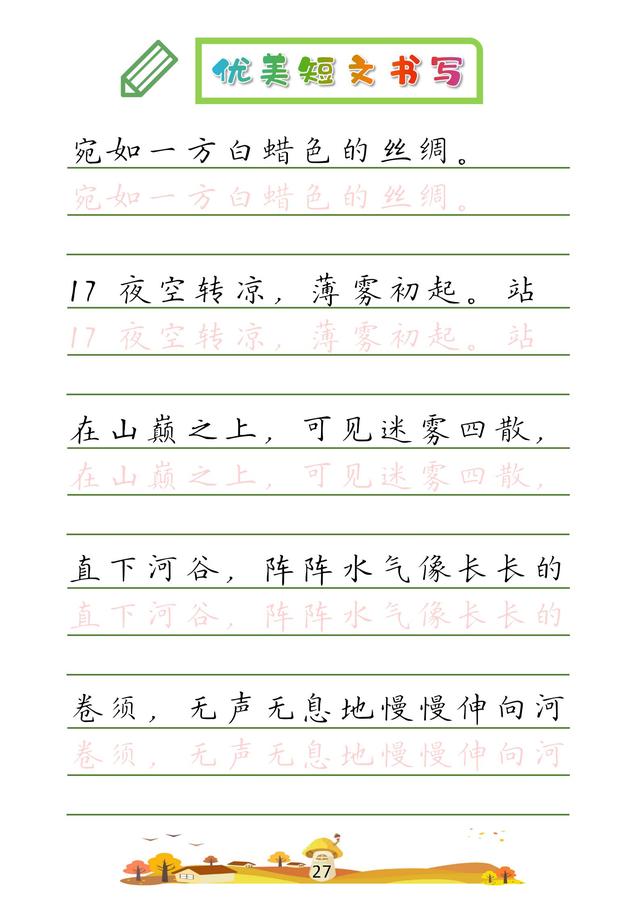 优美短文书写
宛如一方白蜡色的丝绸。
宛如一方白蜡色的丝绸。
17 夜空转凉，薄雾初起。站
17 夜空转凉，薄雾初起。站
在山巅之上，可见迷雾四散，
在山巅之上，可见迷雾四散，
直下河谷，阵阵水气像长长的
直下河谷，阵阵水气像长长的
卷须，无声无息地慢慢伸向河
卷须，无声无息地慢慢伸向河
27